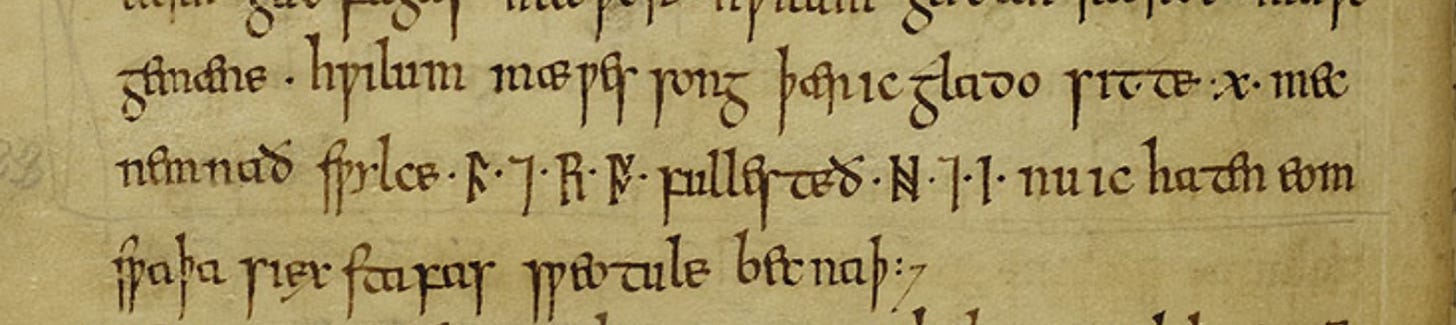 gemæne · hƿilum mæƿes song þær ic glado sitte · x · mec
nemnað sƿylce · ᚫ · ⁊ · ᚱ · ᚩ · fullesteð · ᚻ · ⁊ · ᛁ · nu ic haten eom
sƿa þa siex stafas sƿeotule becnaþ :⁊